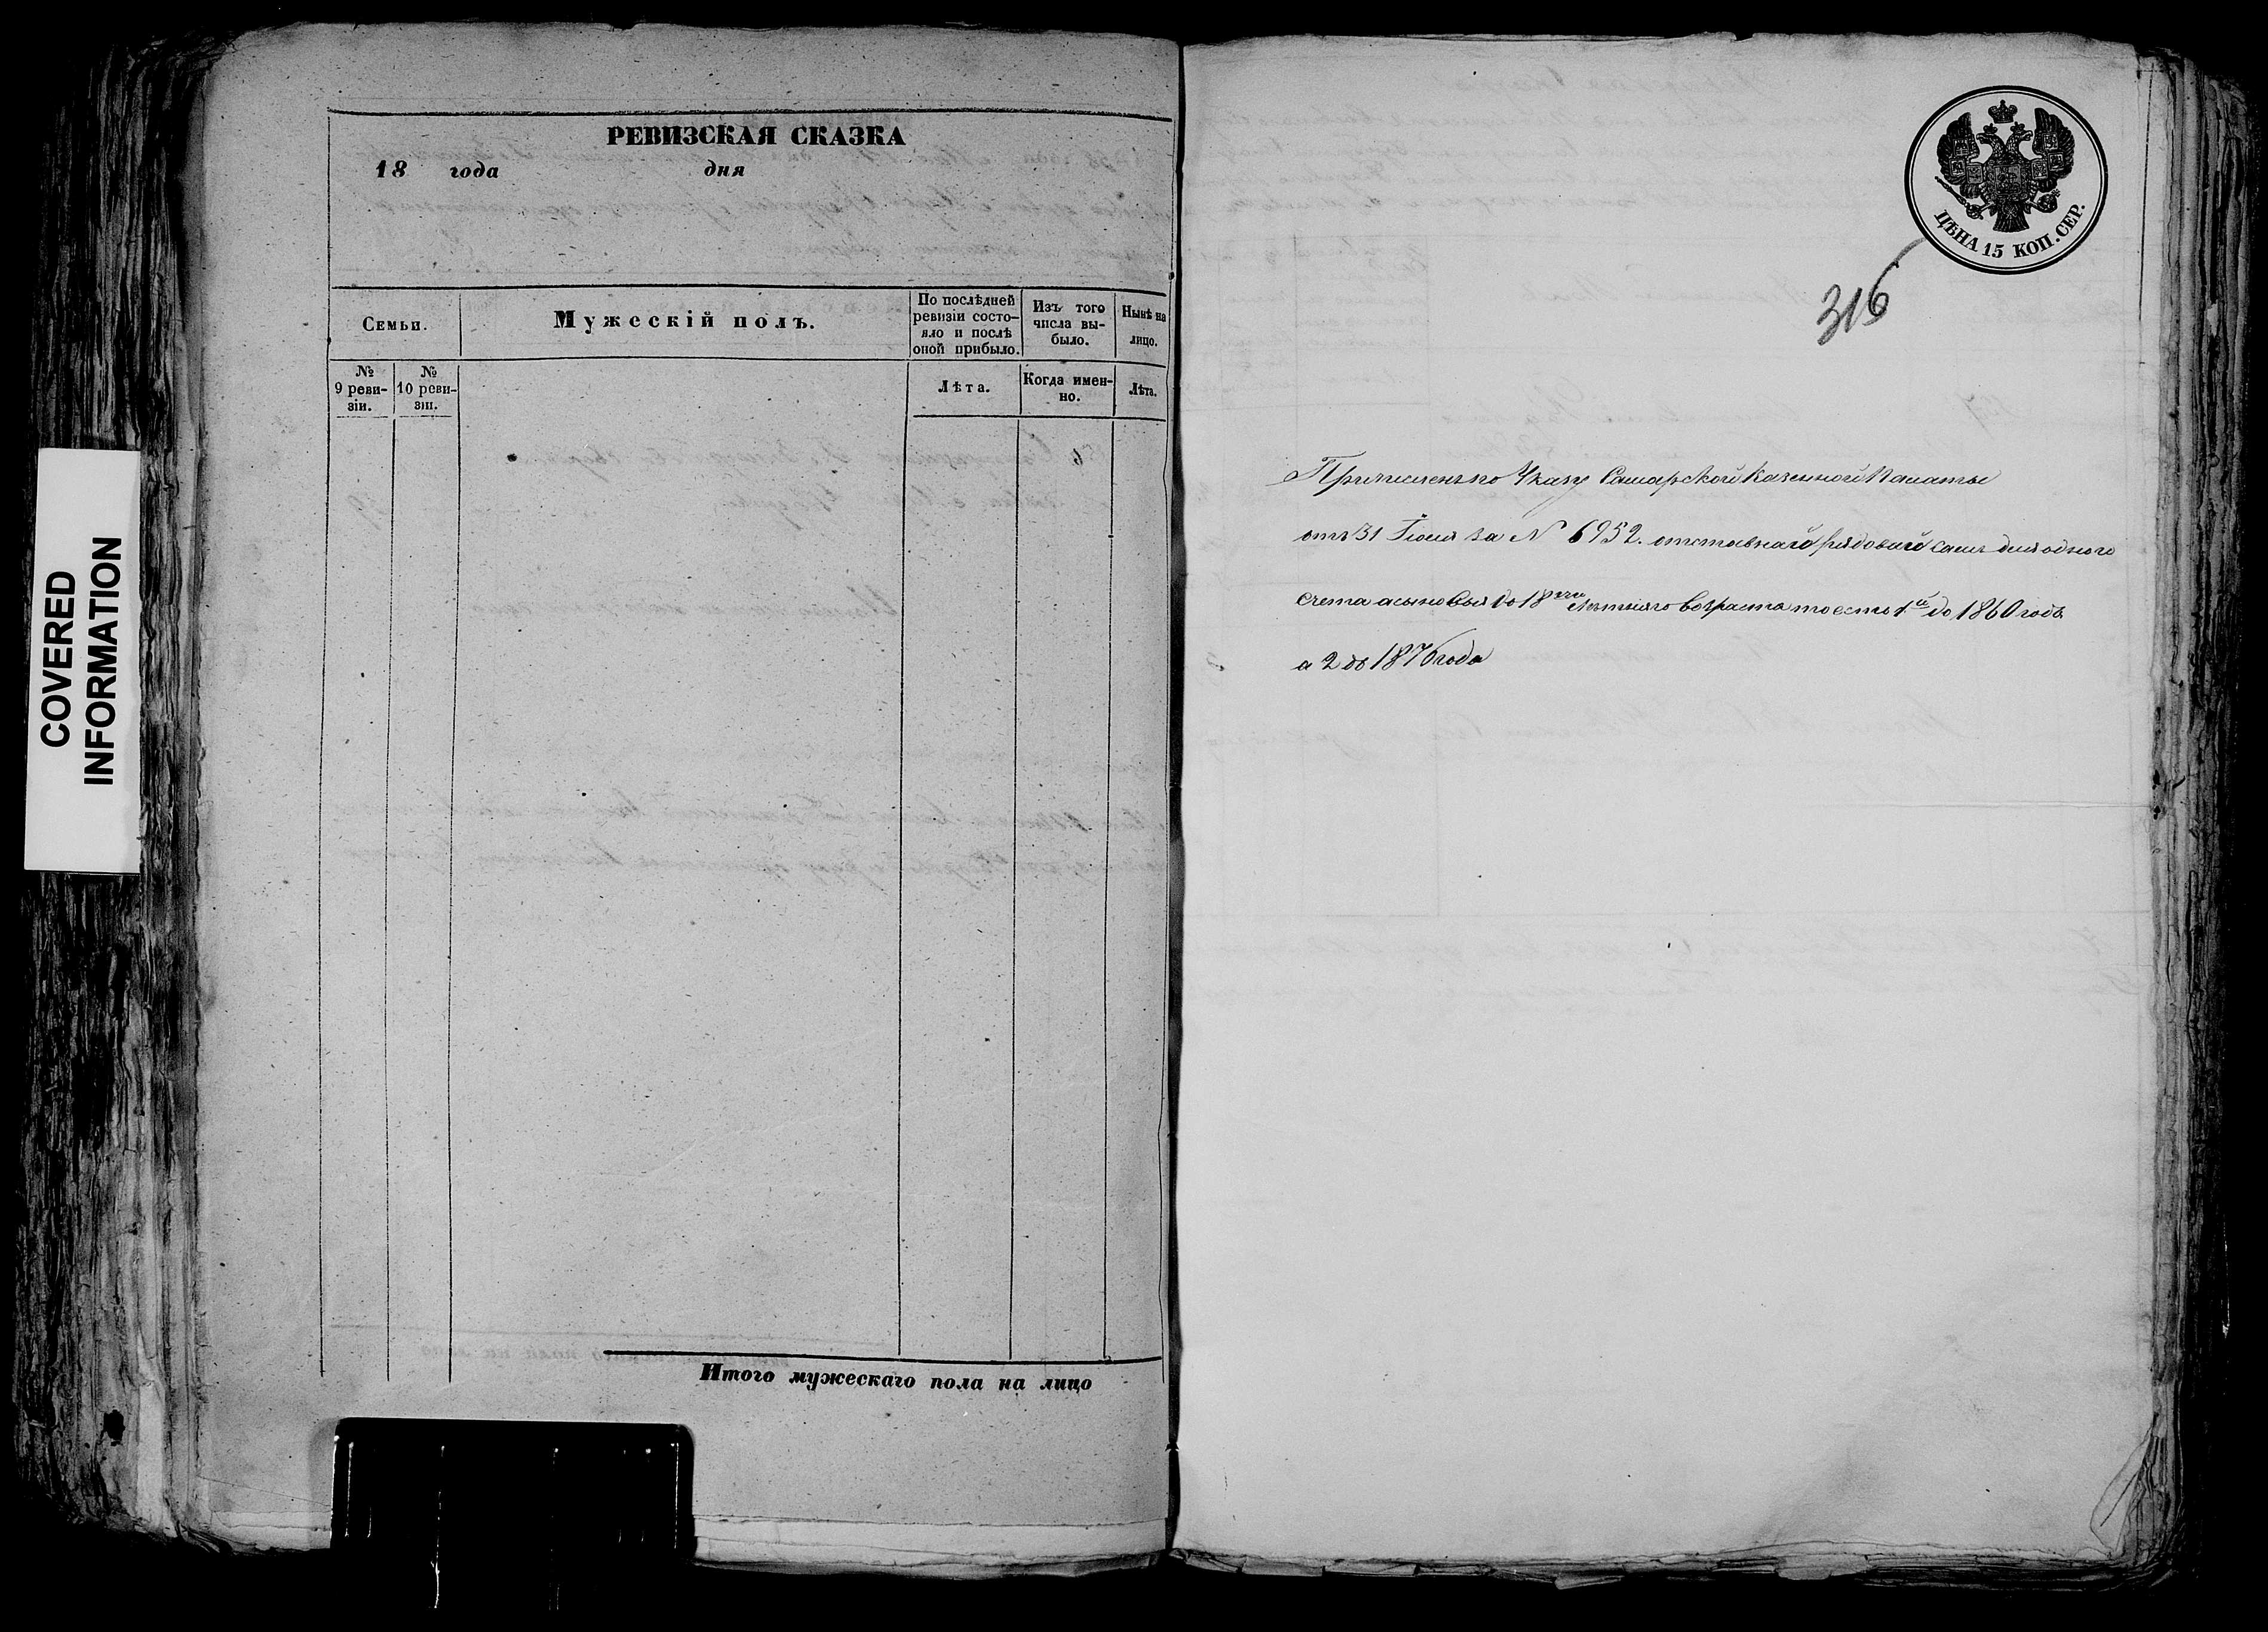 РЕВИЗСКАЯ СКАЗКА
18 года дня
Семьи.
Мужескій полъ.
По послѣдней ревизіи состо-
яло и послѣ
оной прибыло.
Изъ того
числа вы-
было.
Нынѣ на
лицо.
№
9 реви-
зіи.
№
10 реви-
зіи.
Лѣта.
Когда имен-
но.
Лѣта.
Итого мужескаго пола на лицо
COVERED
INFORMATION
ЦѢНА 15 КОП. СЕР.
316
Причисленъ по Указу Самарской Казенной Палаты
отъ 31 Іюля за № 6952. отставнаго рядоваго самъ для одного
счета а сыновья до 18 лѣтняго возраста то есть 1й до 1860 года
а 2 до 1870 года